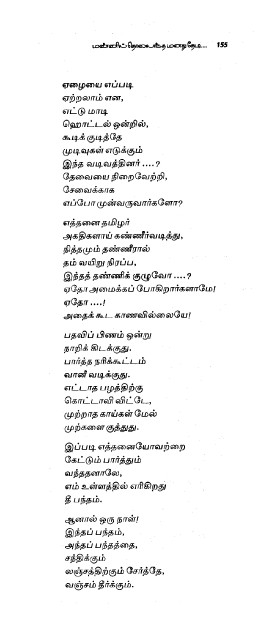 மண்ணிற் தொலைந்த மனது தேடி... 155
ஏழையை எப்படி
ஏற்றலாம் என,
எட்டு மாடி
ஹொட்டல் ஒன்றில்,
கூடிக் குடித்தே
முடிவுகள் எடுக்கும்
இந்த வடிவத்தினர் ....?
தேவையை நிறைவேற்றி,
சேவைக்காக
எப்போ முன்வருவார்களோ?
எத்தனை தமிழர்
அகதிகளாய் கண்ணீர்வடித்து,
நித்தமும் தண்ணீரால்
தம் வயிறு நிரப்ப,
இந்தத் தண்ணிக் குழுவோ ....?
ஏதோ அமைக்கப் போகிறார்களாமே!
ஏதோ ....!
அதைக் கூட காணவில்லையே!
பதவிப் பிணம் ஒன்று
நாறிக் கிடக்குது.
பார்த்த நரிக்கூட்டம்
வாணீ வடிக்குது.
எட்டாத பழத்திற்கு
கொட்டாவி விட்டே,
முற்றாத காய்கள் மேல்
முற்களை குத்துது.
இப்படி எத்தனையோவற்றை
கேட்டும் பார்த்தும்
வந்ததனாலே,
எம் உள்ளத்தில் எரிகிறது
தீ பந்தம்.
ஆனால் ஒரு நாள்!
இந்தப் பந்தம்,
அந்தப் பந்தத்தை,
சந்திக்கும்
லஞ்சத்திற்கும் சேர்த்தே,
வஞ்சம் தீர்க்கும்.